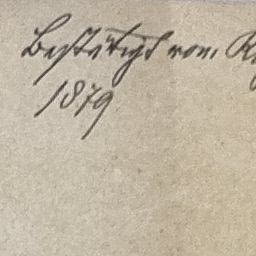 Bestätigt vom
1879